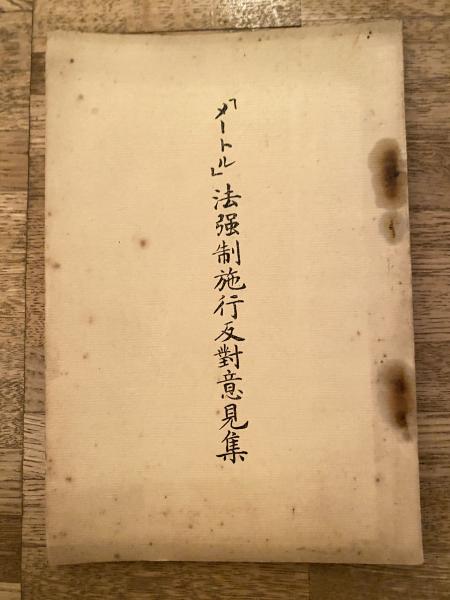 「メートル」法强制施行反對意見集